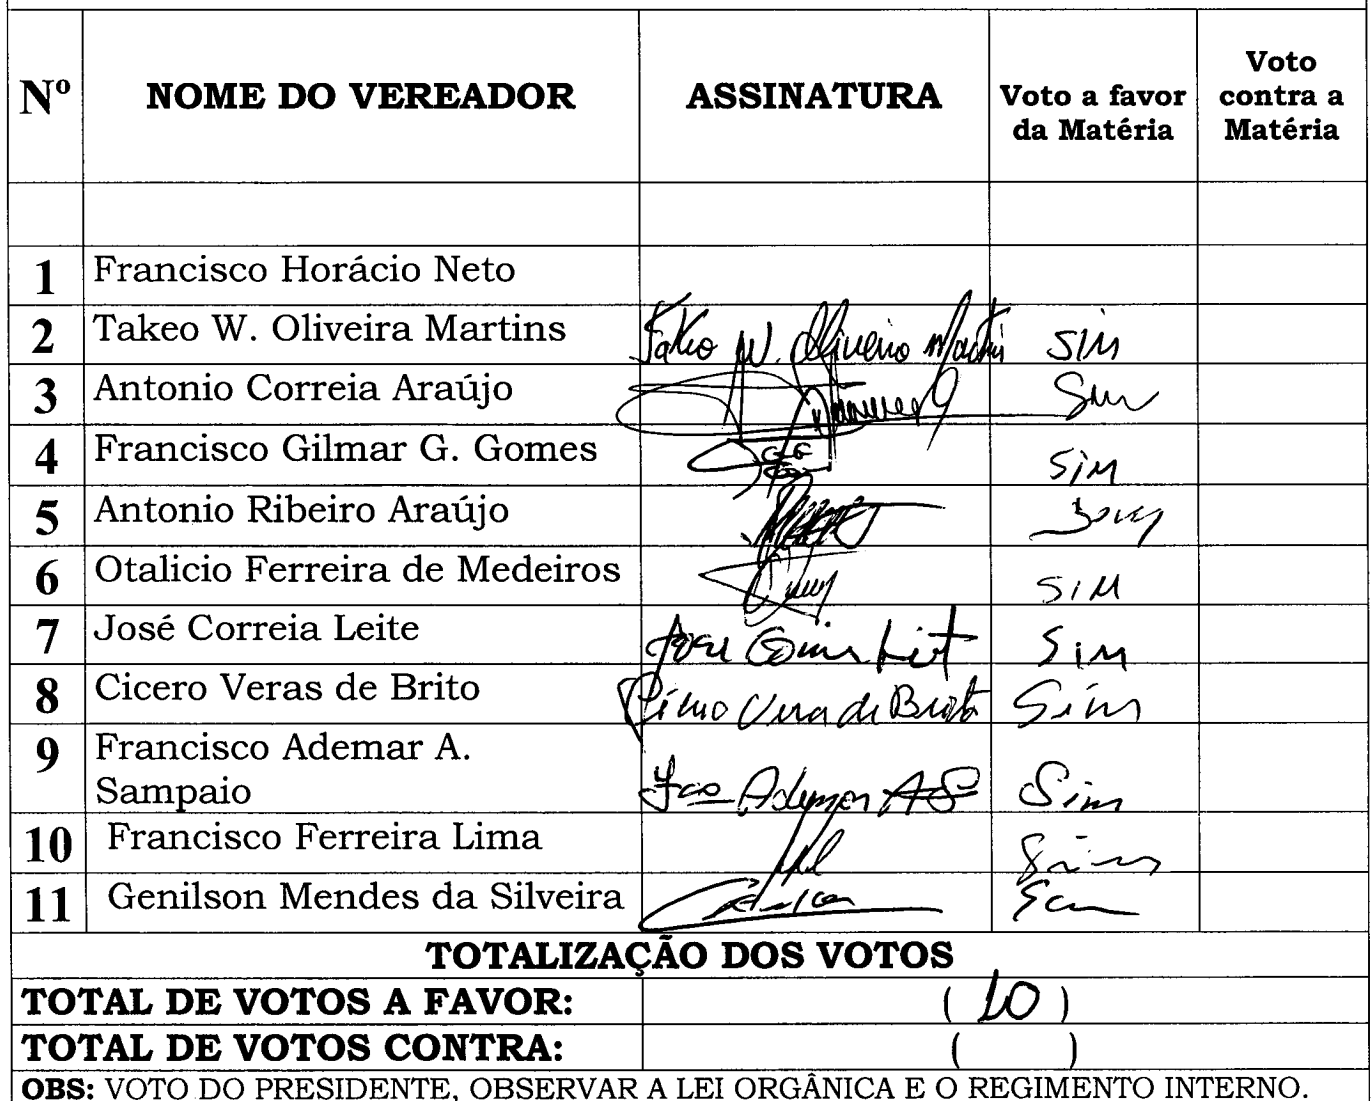 Nº NOME DO VEREADOR ASSINATURA Voto a favor da Matéria Voto contra a Matéria
1 Francisco Horácio Neto
2 Takeo W. Oliveira Martins Takeo W. Oliveira Martins SIM
3 Antonio Correia Araújo Sim
4 Francisco Gilmar G. Gomes SIM
5 Antonio Ribeiro Araújo
6 Otalicio Ferreira de Medeiros SIM
7 José Correia Leite José Correia Leite SIM
8 Cicero Veras de Brito Cícero Vera de Brito Sim
9 Francisco Ademar A.
Sampaio Fco Ademar AS Sim
10 Francisco Ferreira Lima Sim
11 Genilson Mendes da Silveira Sim
TOTALIZAÇÃO DOS VOTOS
TOTAL DE VOTOS A FAVOR: ( 10 )
TOTAL DE VOTOS CONTRA: ( )
OBS: VOTO DO PRESIDENTE, OBSERVAR A LEI ORGÂNICA E O REGIMENTO INTERNO.